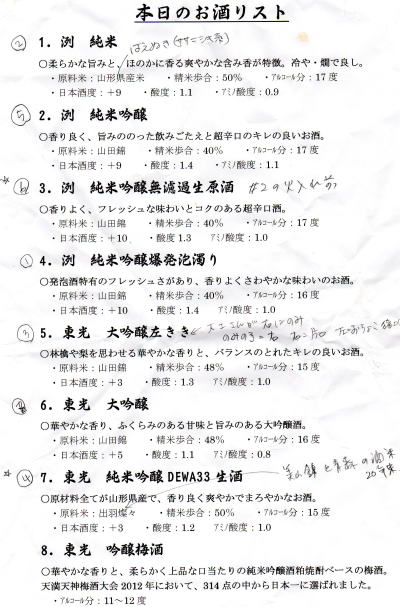 本日のお酒リスト
② 1. 洌 純米
○柔らかな旨みと、ほのかに香る爽やかな含み香が特徴。冷や・燗で良し。
・原料米：山形県産米 ・精米歩合：50% ・アルコール分：17度
・日本酒度：+9 ・酸度：1.1 ・アミノ酸度：0.9
⑤ 2. 洌 純米吟醸
○香り良く、旨みののった飲みごたえと超辛口のキレの良いお酒。
・原料米：山田錦 ・精米歩合：40% ・アルコール分：17度
・日本酒度：+9 ・酸度：1.4 ・アミノ酸度：1.1
☆ ⑥ 3. 洌 純米吟醸無濾過生原酒 #2の火入れ前
○香りよく、フレッシュな味わいとコクのある超辛口酒。
・原料米：山田錦 ・精米歩合：40% ・アルコール分：17度
・日本酒度：+10 ・酸度 1.3 アミノ酸度：1.0
① 4. 洌 純米吟醸爆発泡濁り
○発泡酒特有のフレッシュさがあり、香りよくさわやかな味わいのお酒。
・原料米：山田錦 ・精米歩合：40% ・アルコール分：16度
・日本酒度：+10 ・酸度：1.4 アミノ酸度：1.0
③ 5. 東光 大吟醸左きき
○林檎や梨を思わせる華やかな香りと、バランスのとれたキレの良いお酒。
・原料米：山田錦 ・精米歩合：48% ・アルコール分：15度
・日本酒度：+3 ・酸度：1.3 アミノ酸度：1.0
6. 東光 大吟醸
○華やかな香り、ふくらみのある甘味と旨みのある大吟醸酒。
・原料米：山田錦 ・精米歩合：48% ・アルコール分：16度
・日本酒度：+5 ・酸度：1.1 アミノ酸度：0.8
☆ ④ 7. 東光 純米吟醸 DEWA33 生酒
○原材料全てが山形県産で、香り良く爽やかでまろやかなお酒。
・原料米：出羽燦々 ・精米歩合：50% ・アルコール分：15度
・日本酒度：+3 ・酸度：1.2 アミノ酸度：1.0
8. 東光 吟醸梅酒
○華やかな香りと、柔らかく上品な口当たりの純米吟醸酒粕焼酎ベースの梅酒。
天満天神梅酒大会2012年において、314点の中から日本一に選ばれました。
・アルコール分：11～12度